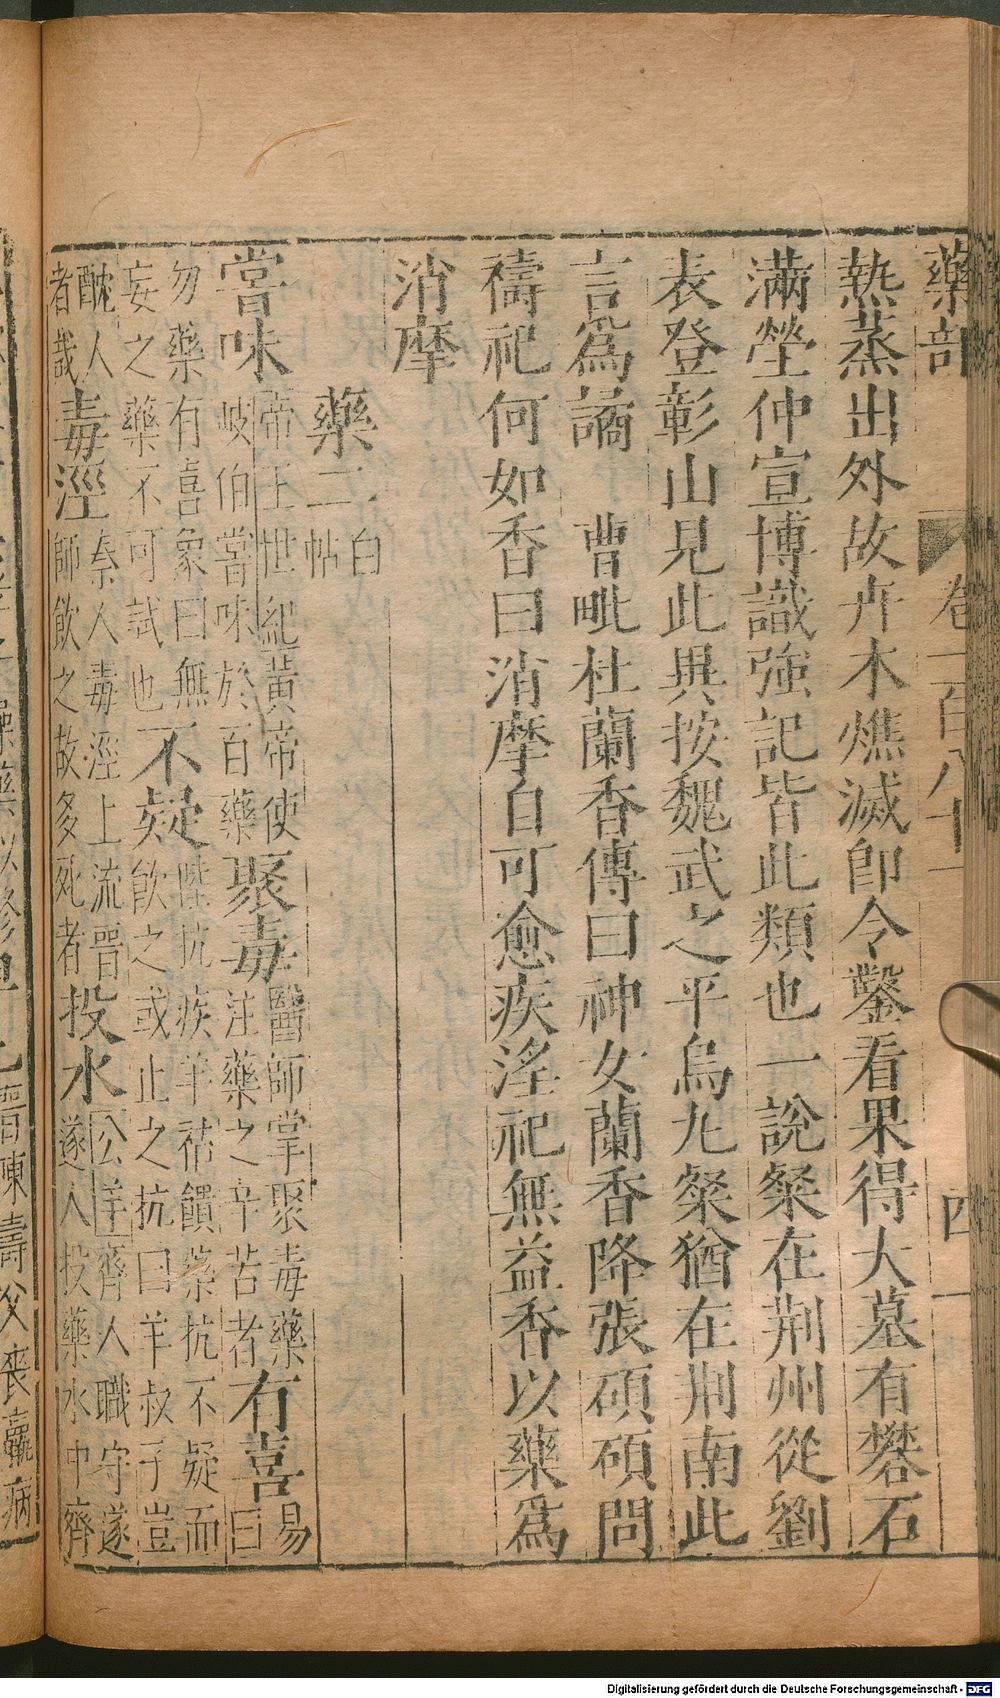 藥部 卷一百八十一 四
熱蒸出外故卉木燋滅卽令鑿看果得大墓有礬石
滿塋仲宣博識強記皆此類也一說粲在荆州從劉
表登彰山見此異按魏武之平烏丸粲猶在荆南此
言爲譎 曹毗杜蘭香傳曰神女蘭香降張碩碩問
禱祀何如香曰消摩自可愈疾淫祀無益香以藥爲
消摩
藥二 白帖
嘗味 帝王世紀黃帝使岐伯嘗味於百藥 聚毒 醫師掌聚毒藥注藥之辛苦者 有喜 易曰
勿藥有喜象曰無妄之藥不可試也 不疑 陸抗疾羊祜饋藥抗不疑而飲之或止之抗曰羊叔子豈
酖人者哉 毒涇 秦人毒涇上流晉師飲之故多死者 投水 公羊齊人職守遂遂人投藥水中齊
晉陳壽父喪羸病
Digitalisierung gefördert durch die Deutsche Forschungsgemeinschaft - DFG